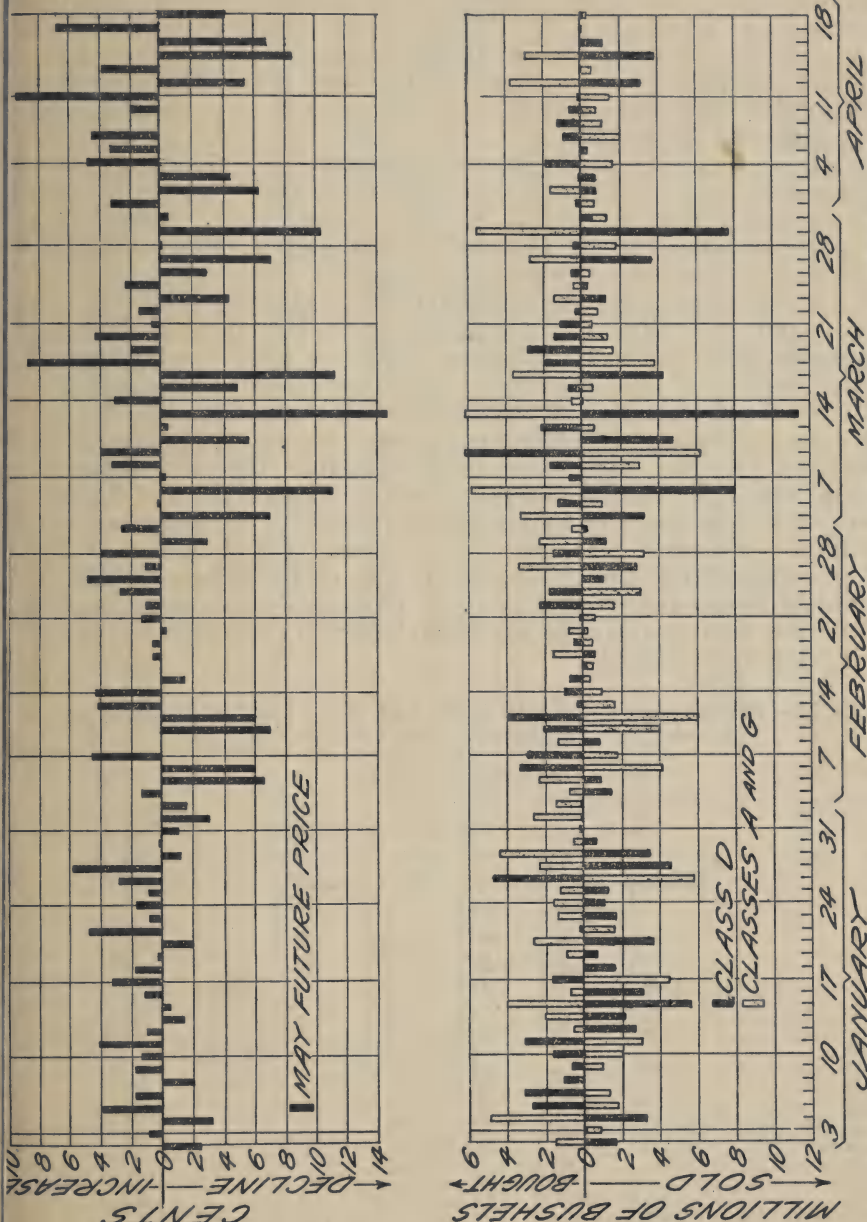 CENTS
←DECLINE—INCREASE
10
8
6
4
2
0
2
4
6
8
10
12
14
MAY FUTURE PRICE
MILLIONS OF BUSHELS
←SOLD—BOUGHT→
6
4
2
0
2
4
6
8
10
12
CLASS D
CLASSES A AND G
3 10 17 24 31 7 14 21 28 7 14 21 28 4 11 18
JANUARY FEBRUARY MARCH APRIL